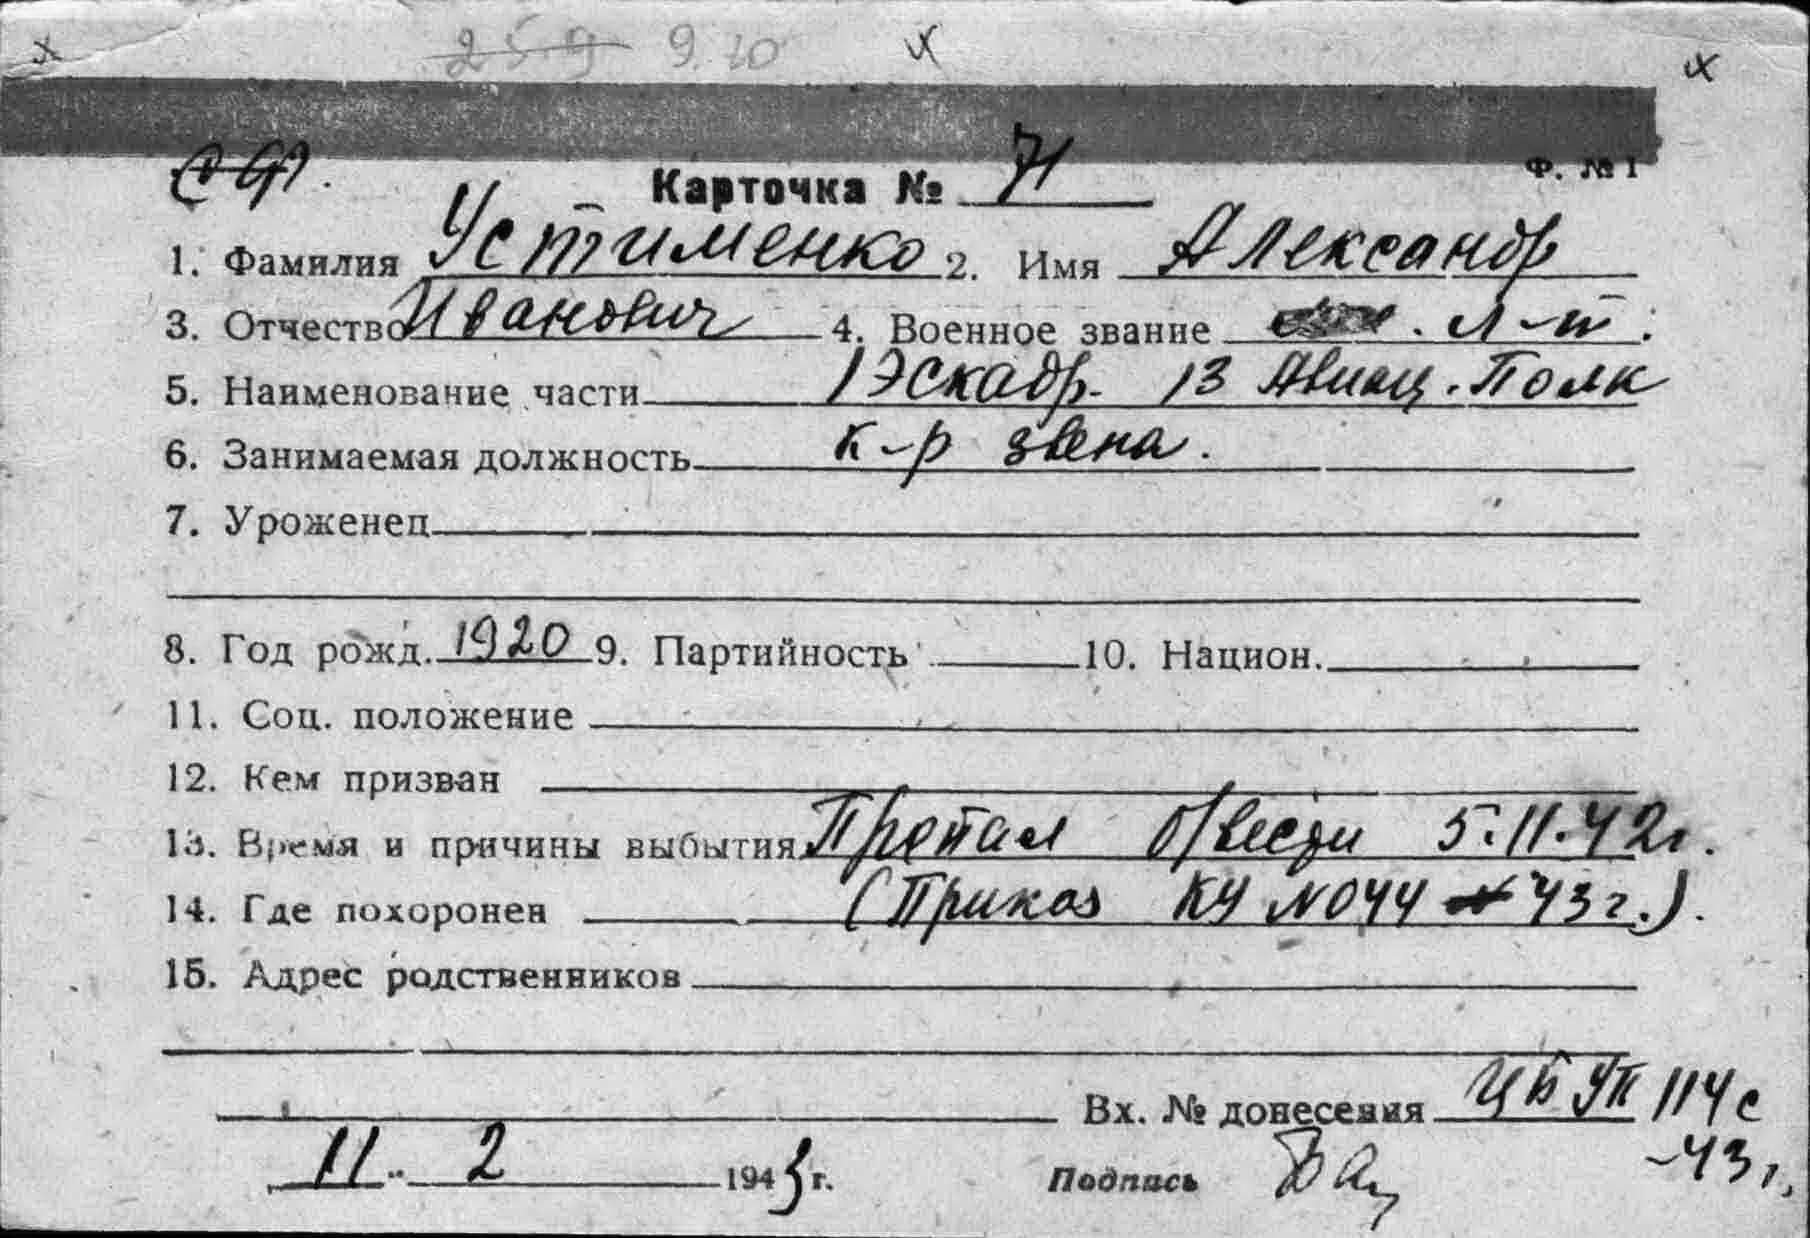 25.9 9.20
СФ.
Ф. № 1
Карточка № 71
1. Фамилия Устименко 2. Имя Александр
3. Отчество Иванович 4. Военное звание л-т.
5. Наименование части 1 Эскадр. 13 Авиац. Полк
6. Занимаемая должность к-р звена.
7. Уроженец
8. Год рожд. 1920 9. Партийность 10. Национ.
11. Соц. положение
12. Кем призван
13. Время и причины выбытия Пропал б/вести 5.11.42г.
14. Где похоронен (Приказ КЧ №044 43г.).
15. Адрес родственников
Вх. № донесения ЦБ УП 114с
-43г,
11 2 1943 г. Подпись